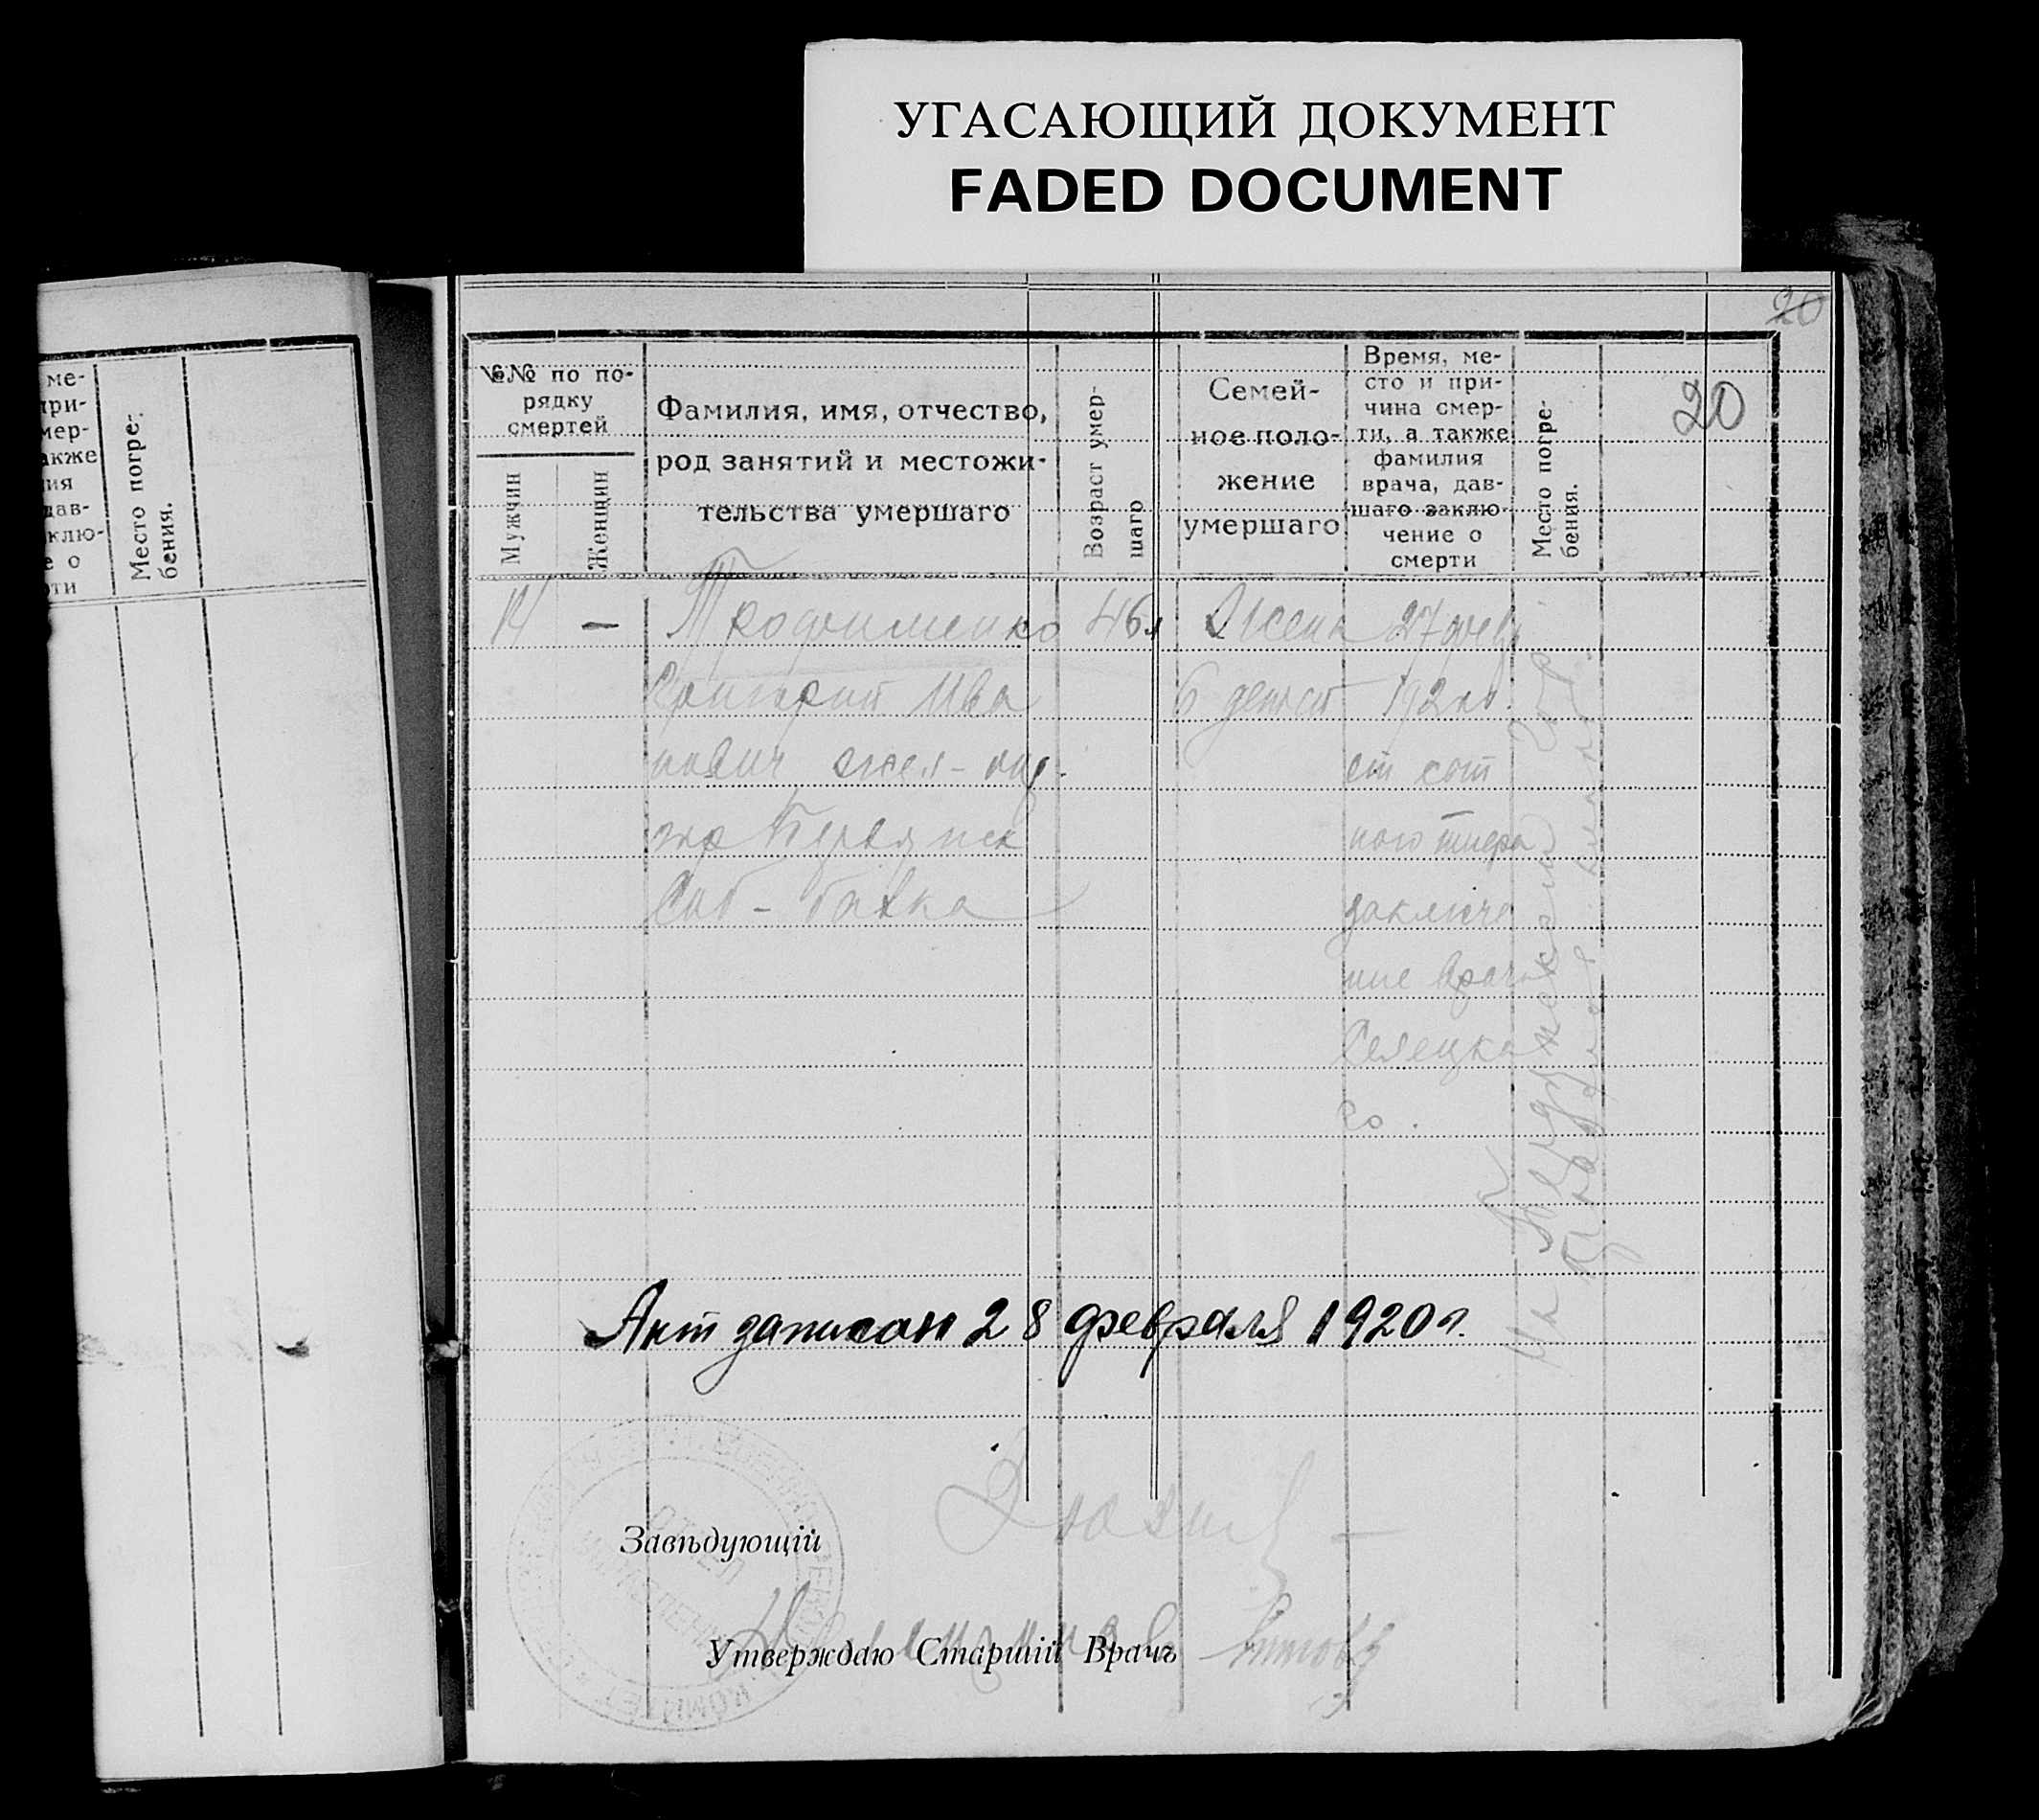 УГАСАЮЩИЙ ДОКУМЕНТ
FADED DOCUMENT
20
20
ме-
при-
мер-
акже
ия
дав-
клю-
е о
рти
Место погре-
бения.
№№ по по-
рядку
смертей
Мужчин
Женщин
Фамилия, имя, отчество,
род занятий и местожи-
тельства умершаго
Возраст умер-
шаго
Семей-
ное поло-
жение
умершаго
Время, ме-
сто и при-
чина смер-
ти, а также
фамилия
врача, дав-
шаго заклю-
чение о
смерти
Место погре-
бения.
14 — Трофименко 46 л Жена 27 фев
Григорий Ива 6 детей 192 го.
нович жел-
ст сып
ного тифа
Соб-
заключе
ние врача
Селецка
го.
На
Акт записан 28 февраля 1920 г.
Завѣдующій
Утверждаю Старшій Врачъ
ОТДЕЛ
КОМИТЕТ